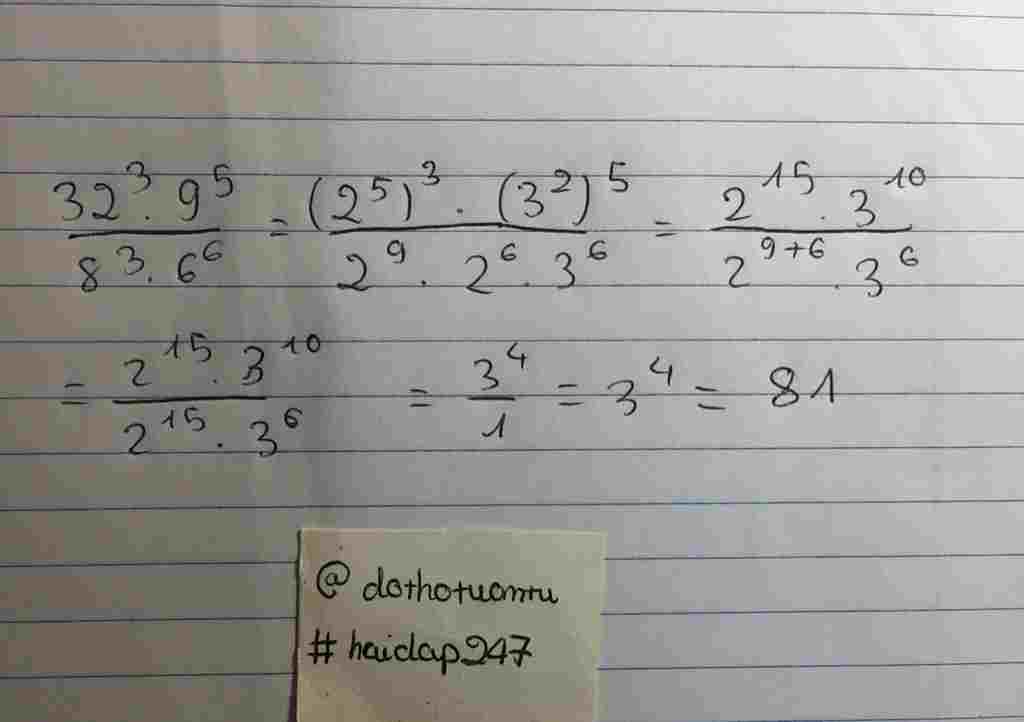 32³ . 9⁵ / 8³ . 6⁶ = (2⁵)³ . (3²)⁵ / 2⁹ . 2⁶ . 3⁶ = 2¹⁵ . 3¹⁰ / 2⁹⁺⁶ . 3⁶
= 2¹⁵ . 3¹⁰ / 2¹⁵ . 3⁶ = 3⁴ / 1 = 3⁴ = 81
@ dothotuomtu
# haidap247